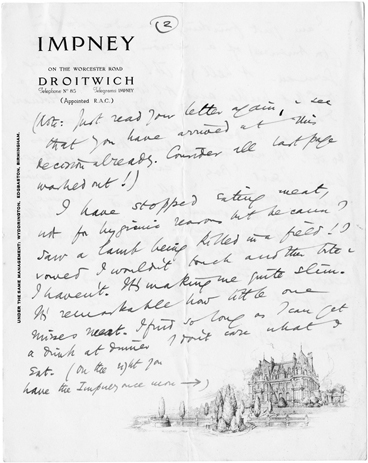 (2)
IMPNEY
ON THE WORCESTER ROAD
DROITWICH
Telephone Nº 85 Telegrams IMPNEY
(Appointed R.A.C.)
UNDER THE SAME MANAGEMENT: WYDDRINGTON, EDGBASTON, BIRMINGHAM.
(Note: Just read your letter again, & see
that you have arrived at this
decision already. Consider all last page
washed out!)
I have stopped eating meat,
not for hygienic reasons but because I
saw a lamb being killed in a field! I
vowed I wouldn't touch another bite &
I haven't. It's making me quite slim.
It's remarkable how little one
misses meat. I find so long as I can get
a drink at dinner I don't care what I
eat. (On the right you
have the Impney once more →)